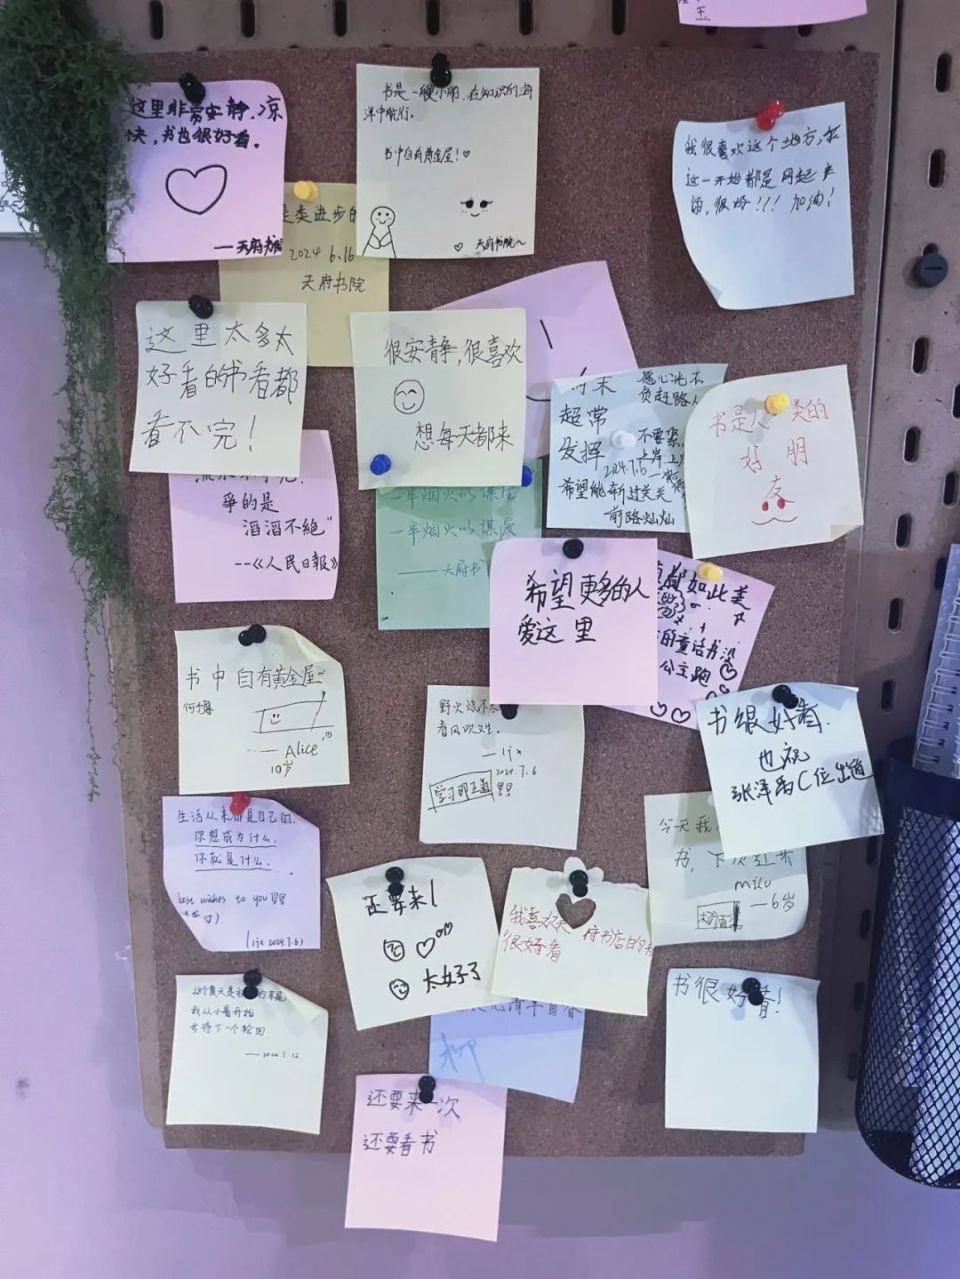 这里非常安静,凉
快,书也很好看。
——天府书院
书是一艘小船,在知识的海
洋中航行。
书中自有黄金屋!♡
♡ 天府书院~
类进步的
2024 6.16
天府书院
我很喜欢这个地方,
这一开始都是网起来
的,很好!!!加油!
这里太多太
好看的书看都
看不完!
很安静,很喜欢
想每天都来
超常
发挥
愿心光不
负赶路人
不要
2024.7.6
希望能斩过关关
前路灿灿
书是人类的
好朋
友
爭的是
滔滔不絕"
--《人民日報》
一半烟火以谋生
一半烟火以谋爱
——天府书
希望更多的人
爱这里
都如此美
的童话书没
公主跑
书中自有黄金屋~
—— Alice
10岁
野火烧不尽
春风吹又生。
— ljx
2024.7.6
学习
书很好看.
也祝
张泽禹C位出道
生活从来都是自己的.
你想成为什么.
你就是什么.
best wishes to you
ljx 2024.7.6
今天我
书,下次还来
milo
—6岁
还要来!
太好了
我喜欢天府书店的书
很好看
这个夏天是
我从小暑开始
等待下一个轮回
——2024.7.12
书很好看!
还要来一次
还要看书